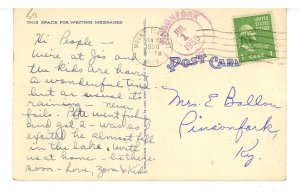 60
THIS SPACE FOR WRITING MESSAGES
Hi People –
We're at Jo's and
the kids are having
a wonderful time
but as usual its
raining – never
fails. Pete went fishing
and got 2 – was so
excited he almost fell
in the lake. Write
us at home – be there
soon – Love, Zora & Kids
PINSONFORK
1
1950
KY.
POST CARD
1 CENT 1
Mrs. E Ballon
Pinsonfork,
Ky.